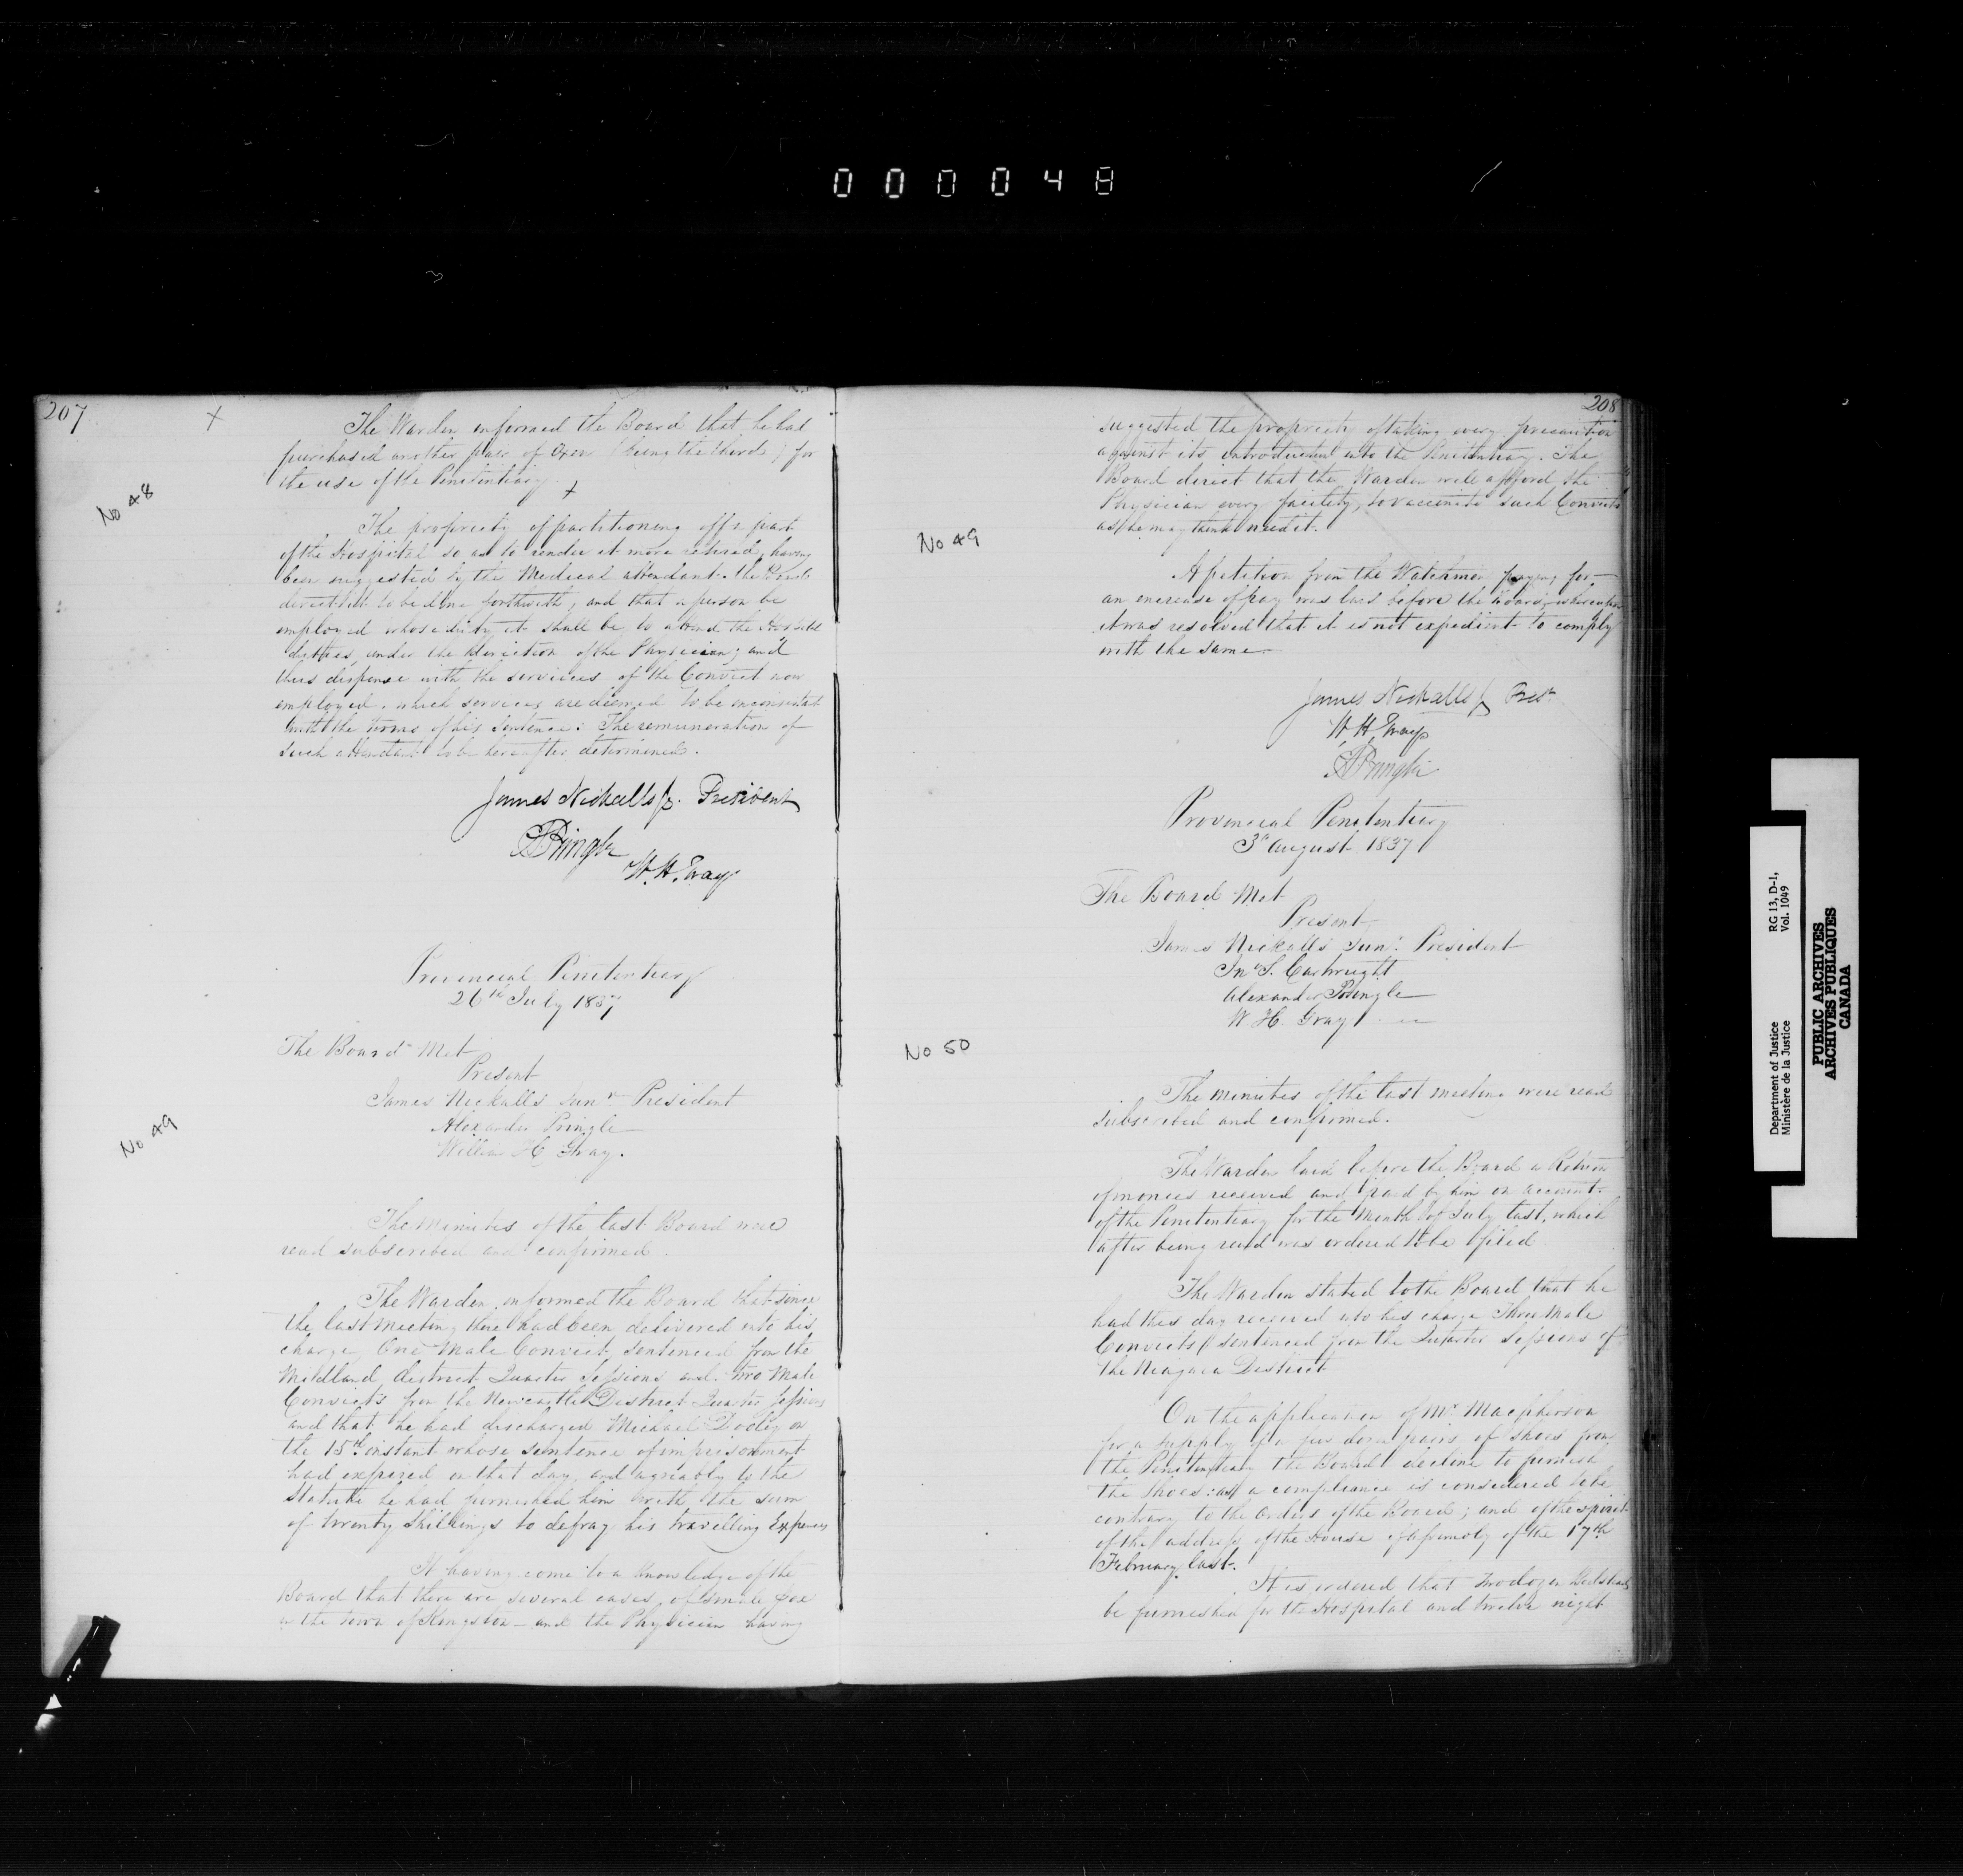 000048
207
X
The Warden informed the Board that he had
purchased another pair of Oxen (being the third) for
the use of the Penitentiary X
No 48
The propriety of partitioning off a part
of the Hospital so as to render it more retired, having
been suggested by the Medical attendant. The Board
direct it to be done forthwith, and that a person be
employed whose duty it shall be to attend the Hospital
duties, under the direction of the Physician; and
thus dispense with the services of the Convict now
employed, which services are deemed to be inconsistent
with the terms of his Sentence: The remuneration of
such attendant to be hereafter determined.
James Nickalls Jr. President
A Pringle
W. H. Gray
Provincial Penitentiary
26th July 1837
The Board Met
Present
James Nickalls Junr President
Alexander Pringle
William H Gray.
No 49
The Minutes of the last Board were
read subscribed and confirmed.
The Warden informed the Board that since
the last Meeting there had been delivered into his
charge, One Male Convict, sentenced from the
Midland district Quarter Sessions and two Male
Convicts from the Newcastle District Quarter Sessions
and that he had discharged Michael Dooley on
the 15th instant whose sentence of imprisonment
had expired on that day, and agreably to the
Statute he had furnished him with the sum
of twenty Shillings to defray his travelling Expenses
It having come to a knowledge of the
Board that there are several cases of small pox
in the town of Kingston - and the Physician having
208
suggested the propriety of taking every precaution
against its introduction into the Penitentiary. The
Board direct that the Warden will afford the
Physician every facility, to vaccinate such Convicts
as he may think need it.
No 49
A petition from the Watchmen praying for
an increase of pay was laid before the Board, whereupon
it was resolved that it is not expedient to comply
with the same.
James Nickalls Jr Prest
W. H. Gray
A Pringle
Provincial Penitentiary
3d August 1837
The Board Met
Present
James Nickalls Junr President
Jno S. Cartwright
Alexander Pringle
W H Gray
No 50
The minutes of the last meeting were read
subscribed and confirmed.
The Warden laid before the Board a Return
of monies received and paid by him on account
of the Penitentiary for the Month of July last, which
after being read was ordered to be filed
The Warden stated to the Board that he
had this day received into his charge Three Male
Convicts sentenced from the Quarter Sessions of
the Niagara District
On the application of Mr Macpherson
for a supply of a few dozen pairs of Shoes from
the Penitentiary the Board decline to furnish
the Shoes: as a compliance is considered to be
contrary to the Orders of the Board; and of the spirit
of the address of the House of Assembly of the 17th
February last.
It is ordered that two dozen Bedsteads
be furnished for the Hospital and twelve night
Department of Justice
Ministère de la Justice
RG 13, D-1,
Vol. 1049
PUBLIC ARCHIVES
ARCHIVES PUBLIQUES
CANADA